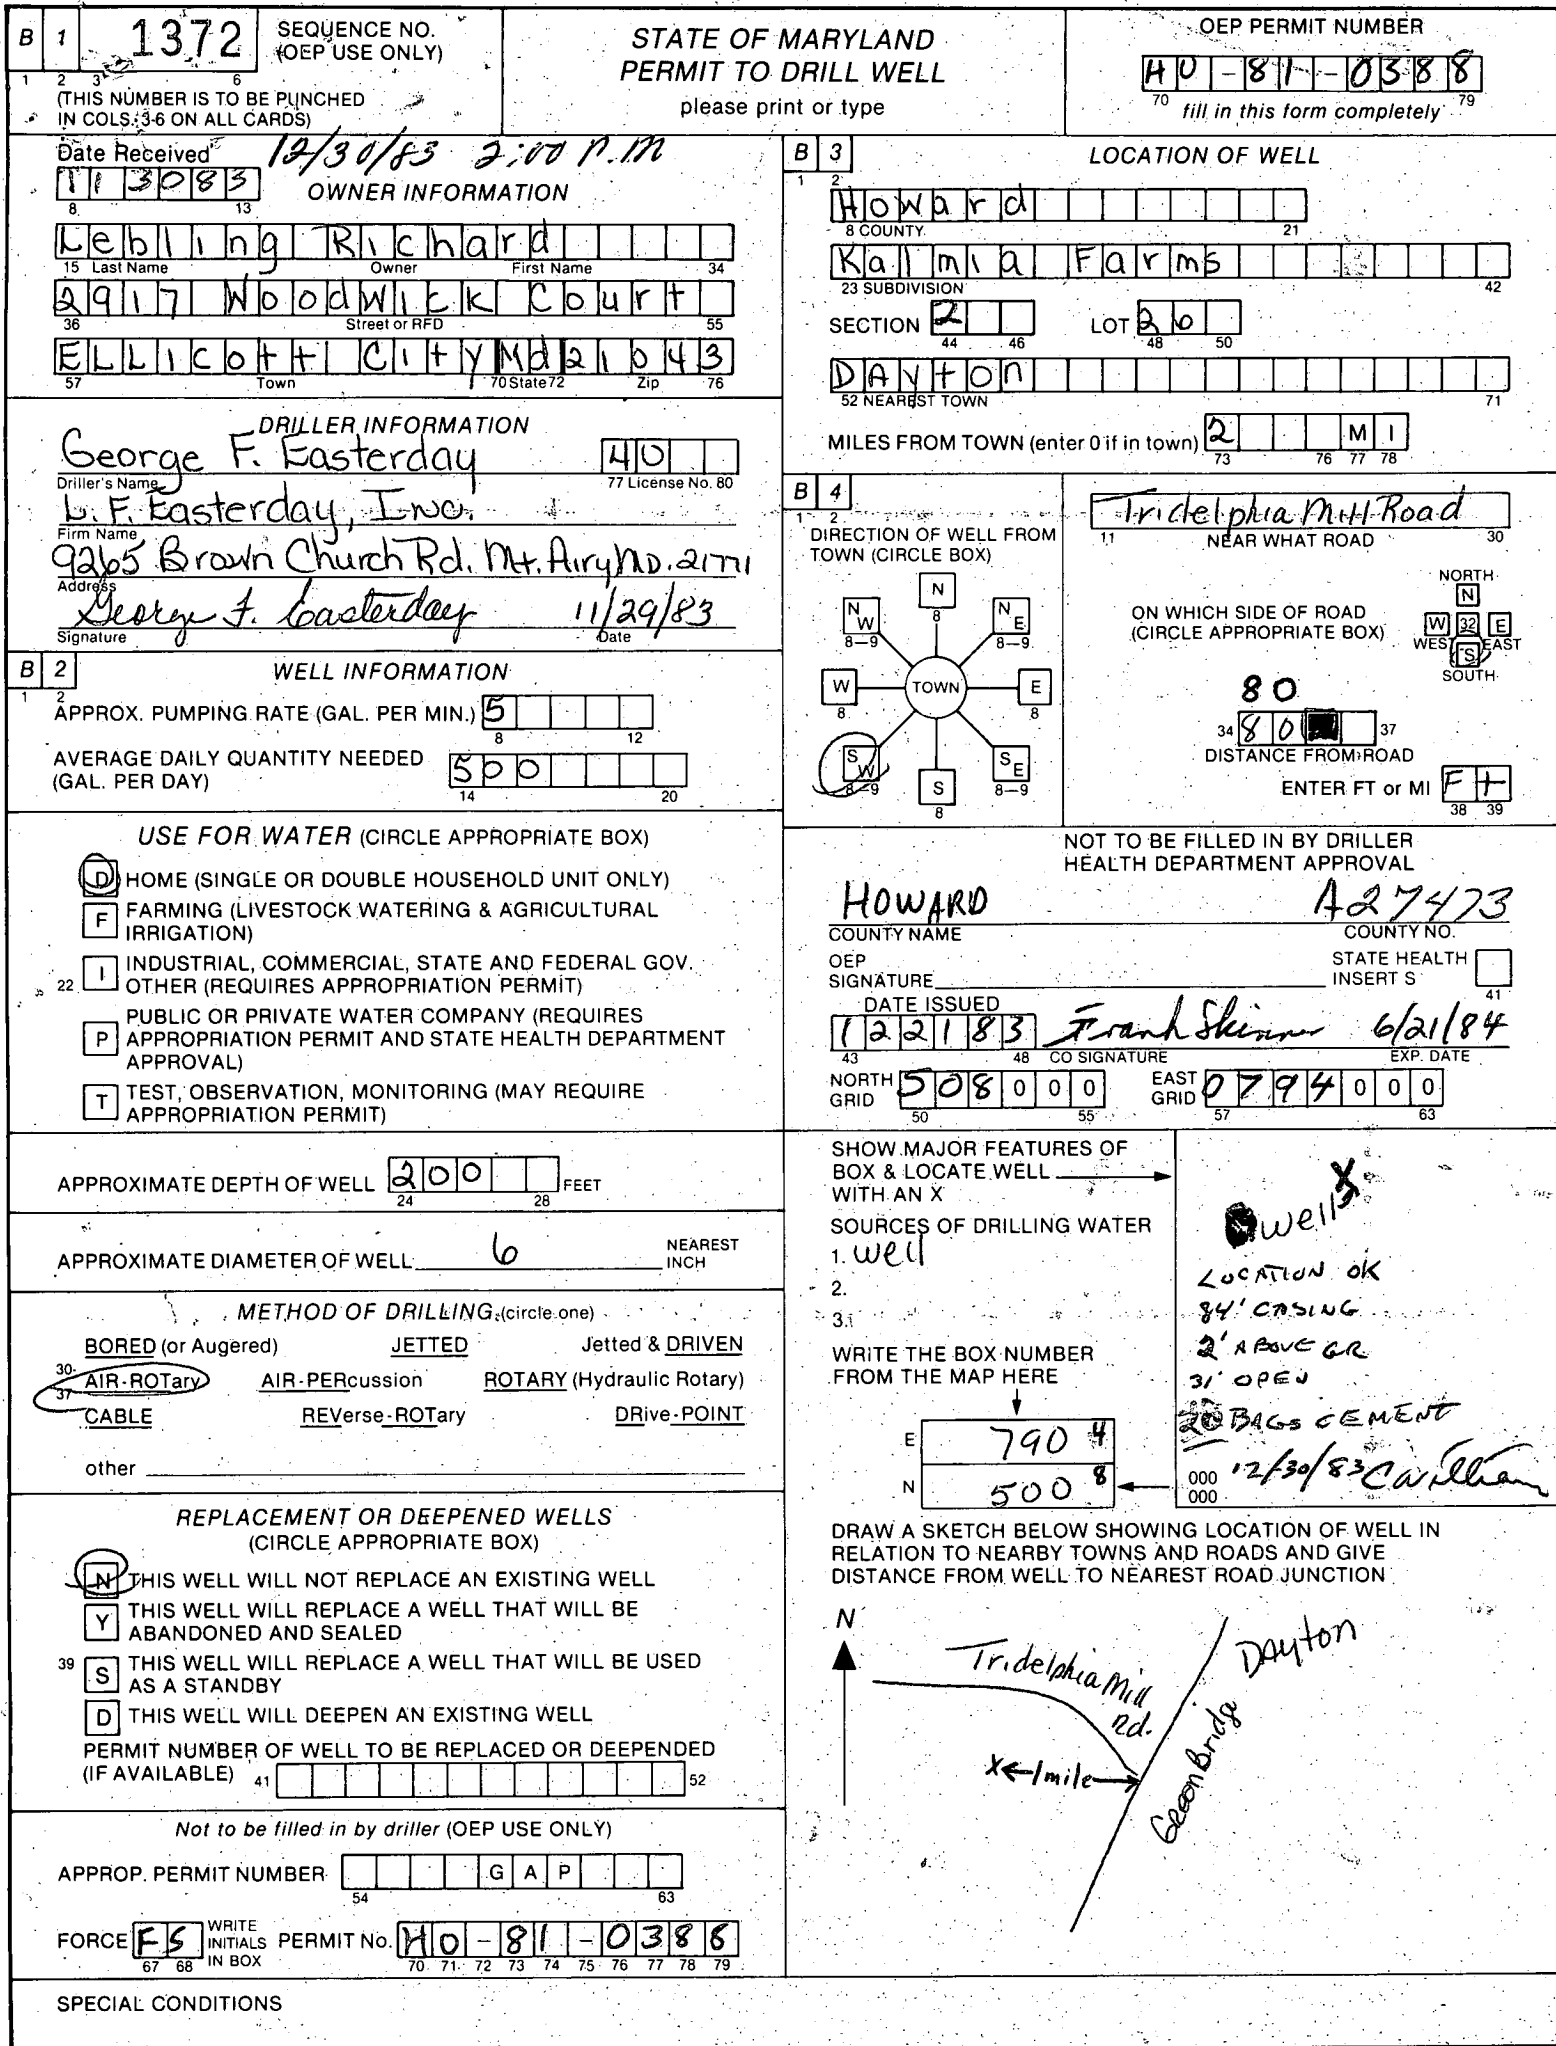 B 1 1372 SEQUENCE NO. (OEP USE ONLY)
1 2 3 6
(THIS NUMBER IS TO BE PUNCHED IN COLS. 3-6 ON ALL CARDS)
STATE OF MARYLAND
PERMIT TO DRILL WELL
please print or type
OEP PERMIT NUMBER
HO-81-0388
70 79
fill in this form completely
Date Received 12/30/83 2:00 P.M
113083
8 13
OWNER INFORMATION
Lebling Richard
15 Last Name Owner First Name 34
2917 Woodwick Court
36 Street or RFD 55
ELLicott City Md 21043
57 Town 70 State 72 Zip 76
DRILLER INFORMATION
George F. Easterday 40
Driller's Name 77 License No. 80
L. F. Easterday, Inc.
Firm Name
9265 Brown Church Rd. Mt. Airy MD. 21771
Address
George F. Easterday 11/29/83
Signature Date
B 2 WELL INFORMATION
1 2
APPROX. PUMPING RATE (GAL. PER MIN.) 5
8 12
AVERAGE DAILY QUANTITY NEEDED (GAL. PER DAY) 500
14 20
USE FOR WATER (CIRCLE APPROPRIATE BOX)
D HOME (SINGLE OR DOUBLE HOUSEHOLD UNIT ONLY)
F FARMING (LIVESTOCK WATERING & AGRICULTURAL
IRRIGATION)
22 I INDUSTRIAL, COMMERCIAL, STATE AND FEDERAL GOV.
OTHER (REQUIRES APPROPRIATION PERMIT)
P PUBLIC OR PRIVATE WATER COMPANY (REQUIRES
APPROPRIATION PERMIT AND STATE HEALTH DEPARTMENT
APPROVAL)
T TEST, OBSERVATION, MONITORING (MAY REQUIRE
APPROPRIATION PERMIT)
APPROXIMATE DEPTH OF WELL 200 FEET
24 28
APPROXIMATE DIAMETER OF WELL 6 NEAREST INCH
METHOD OF DRILLING (circle one)
BORED (or Augered) JETTED Jetted & DRIVEN
30-37 AIR-ROTary AIR-PERcussion ROTARY (Hydraulic Rotary)
CABLE REVerse-ROTary DRive-POINT
other
REPLACEMENT OR DEEPENED WELLS
(CIRCLE APPROPRIATE BOX)
N THIS WELL WILL NOT REPLACE AN EXISTING WELL
Y THIS WELL WILL REPLACE A WELL THAT WILL BE
ABANDONED AND SEALED
39 S THIS WELL WILL REPLACE A WELL THAT WILL BE USED
AS A STANDBY
D THIS WELL WILL DEEPEN AN EXISTING WELL
PERMIT NUMBER OF WELL TO BE REPLACED OR DEEPENDED
(IF AVAILABLE) 41 52
Not to be filled in by driller (OEP USE ONLY)
APPROP. PERMIT NUMBER GAP
54 63
FORCE FS WRITE INITIALS IN BOX PERMIT No. HO-81-0388
67 68 70 71 72 73 74 75 76 77 78 79
SPECIAL CONDITIONS
B 3 LOCATION OF WELL
1 2
Howard
8 COUNTY 21
Kalmia Farms
23 SUBDIVISION 42
SECTION 2 LOT 26
44 46 48 50
DAyton
52 NEAREST TOWN 71
MILES FROM TOWN (enter 0 if in town) 2 MI
73 76 77 78
B 4
1 2
DIRECTION OF WELL FROM
TOWN (CIRCLE BOX)
N 8
NW 8-9 NE 8-9
W 8 TOWN E 8
SW 8-9 SE 8-9
S 8
Tridelphia Mill Road
11 NEAR WHAT ROAD 30
ON WHICH SIDE OF ROAD
(CIRCLE APPROPRIATE BOX)
NORTH N
W 32 E
WEST EAST
S
SOUTH
80
34 80 37
DISTANCE FROM ROAD
ENTER FT or MI Ft
38 39
NOT TO BE FILLED IN BY DRILLER
HEALTH DEPARTMENT APPROVAL
HOWARD A27473
COUNTY NAME COUNTY NO.
OEP SIGNATURE STATE HEALTH INSERT S
41
DATE ISSUED
122183 Frank Skinner 6/21/84
43 48 CO SIGNATURE EXP. DATE
NORTH GRID 508000 EAST GRID 0794000
50 55 57 63
SHOW MAJOR FEATURES OF
BOX & LOCATE WELL
WITH AN X
SOURCES OF DRILLING WATER
1. well
2.
3.
WRITE THE BOX NUMBER
FROM THE MAP HERE
E 790 4
N 500 8
X
well
LOCATION OK
84' CASING
2' ABOVE GR
31' OPEN
20 BAGS CEMENT
000 000 12/30/83
DRAW A SKETCH BELOW SHOWING LOCATION OF WELL IN
RELATION TO NEARBY TOWNS AND ROADS AND GIVE
DISTANCE FROM WELL TO NEAREST ROAD JUNCTION
N
Tridelphia Mill
Rd.
DAyton
X 1 mile
Green Bridge